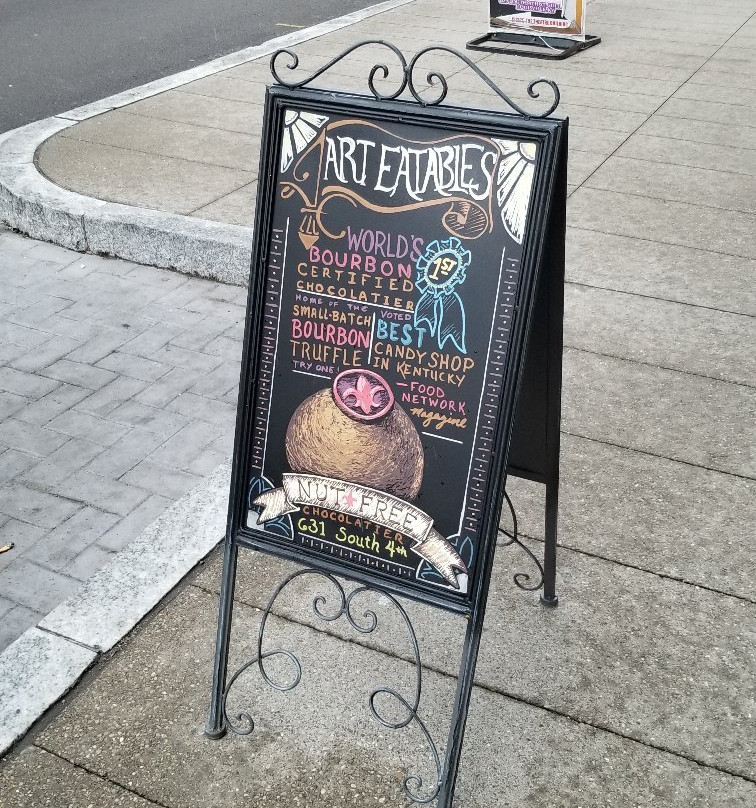 ART EATABLES
WORLD'S
1ST
BOURBON
CERTIFIED
CHOCOLATIER
HOME OF THE
SMALL-BATCH
BOURBON
TRUFFLE
TRY ONE!
VOTED
BEST
CANDY SHOP
IN KENTUCKY
—FOOD
NETWORK
Magazine
NUT FREE
CHOCOLATIER
631 South 4th